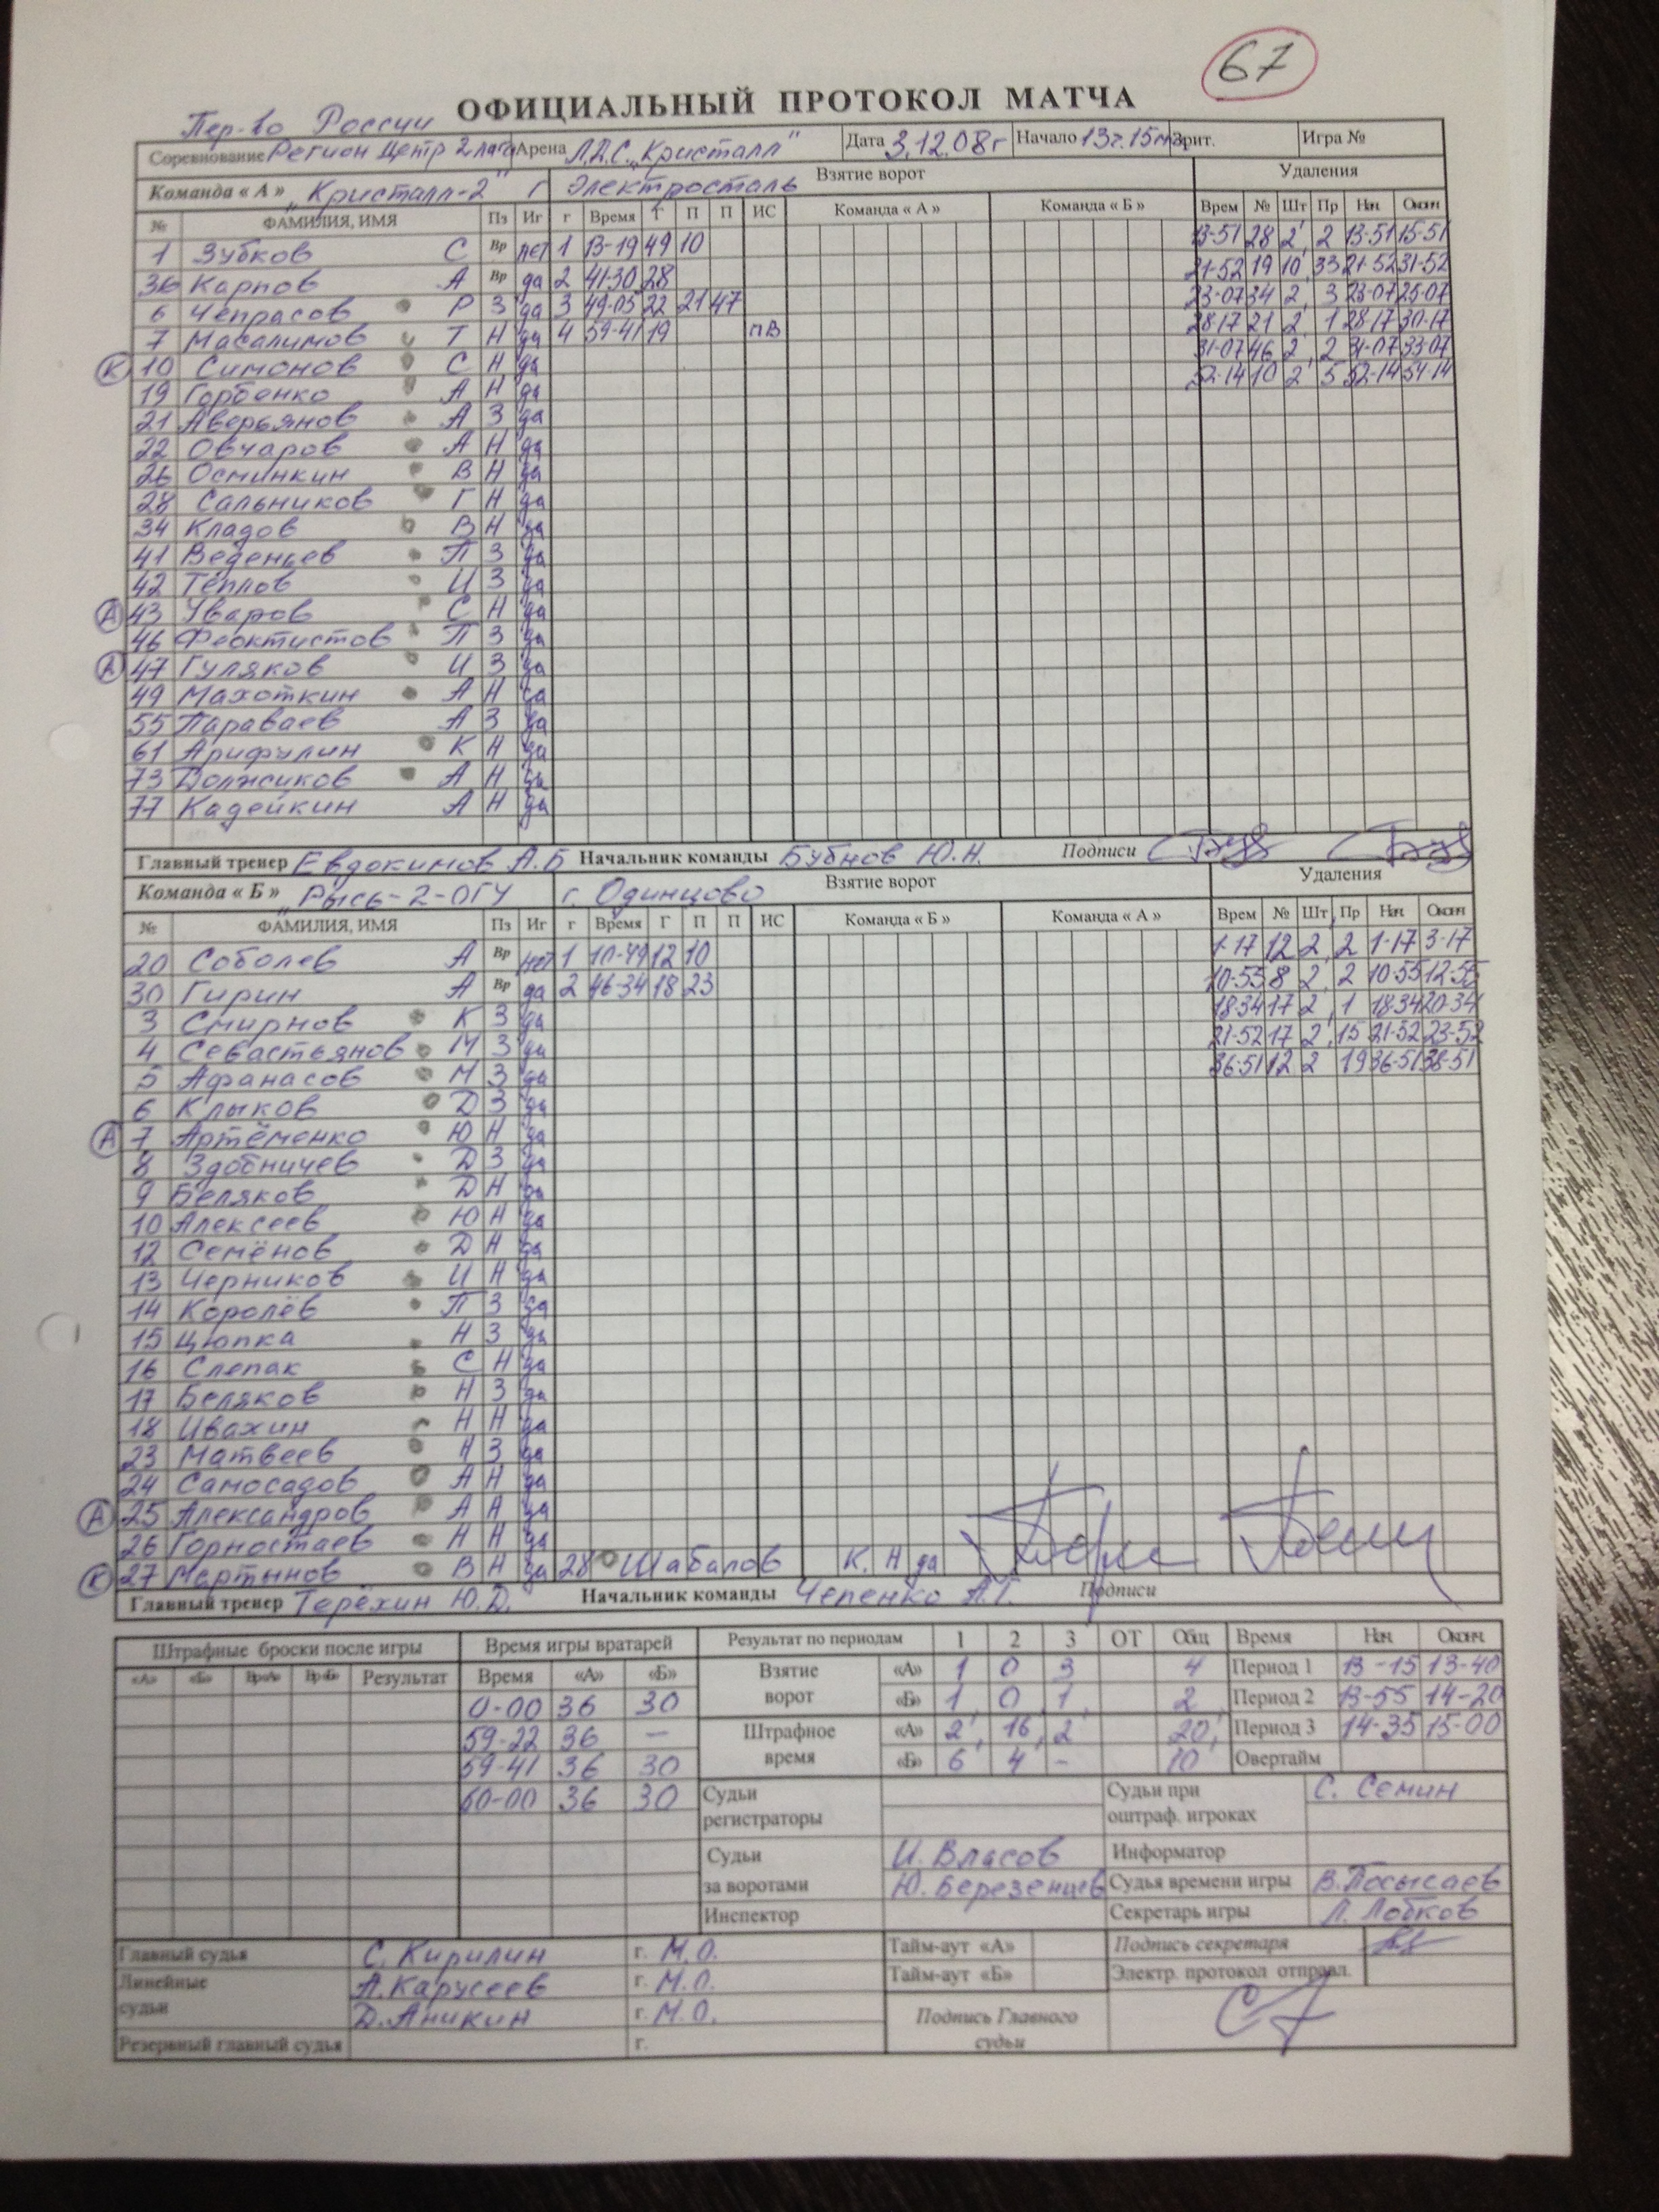 67
ОФИЦИАЛЬНЫЙ ПРОТОКОЛ МАТЧА
Пер-во России
Соревнование Регион Центр 2 лига Арена Л.Д.С. „Кристалл" Дата 3.12.08г Начало 13ч.15м Зрит. Игра №
Команда « А » „Кристалл-2" г Электросталь Взятие ворот Удаления
№ ФАМИЛИЯ, ИМЯ Пз Иг г Время Г П П ИС Команда « А » Команда « Б » Врем № Шт Пр Нач Оконч
1 Зубков С Вр нет 1 13-19 49 10 13-51 28 2' 2 13-51 15-51
36 Карпов А Вр да 2 41-30 28 21-52 19 10' 33 21-52 31-52
6 Чепрасов Р З да 3 49-05 22 21 47 23-07 34 2' 3 23-07 25-07
7 Масалимов Т Н да 4 59-41 19 пв 28-17 21 2' 1 28-17 30-17
К 10 Симонов С Н да 31-07 46 2' 2 31-07 33-07
19 Горбенко А Н да 52-14 10 2' 5 52-14 54-14
21 Аверьянов А З да
22 Овчаров А Н да
26 Осминкин В Н да
28 Сальников Г Н да
34 Кладов В Н да
41 Веденьев П З да
42 Тёплов И З да
А 43 Уваров С Н да
46 Феоктистов П З да
А 47 Гуляков И З да
49 Махоткин А Н да
55 Параваев А З да
61 Арифулин К Н да
73 Должиков А Н да
77 Кадейкин А Н да
Главный тренер Евдокимов А.Б Начальник команды Бубнов Ю.Н. Подписи
Команда « Б » „Рысь-2-ОГУ г. Одинцово Взятие ворот Удаления
№ ФАМИЛИЯ, ИМЯ Пз Иг г Время Г П П ИС Команда « Б » Команда « А » Врем № Шт Пр Нач Оконч
20 Соболев А Вр нет 1 10-49 12 10 1-17 12 2 2 1-17 3-17
30 Гирин А Вр да 2 46-34 18 23 10-55 8 2 2 10-55 12-55
3 Смирнов К З да 18-34 17 2 1 18-34 20-34
4 Севастьянов М З да 21-52 17 2' 15 21-52 23-52
5 Афанасов М З да 36-51 12 2 19 36-51 38-51
6 Клыков Д З да
А 7 Артёменко Ю Н да
8 Здобничев Д З да
9 Беляков Д Н да
10 Алексеев Ю Н да
12 Семёнов Д Н да
13 Черников И Н да
14 Королёв П З да
15 Цюпка Н З да
16 Слепак С Н да
17 Беляков Н З да
18 Ивахин Н Н да
23 Матвеев Н З да
24 Самосадов А Н да
А 25 Александров А Н да
26 Горностаев Н Н да
К 27 Мартынов В Н да 28 Шабалов К. Н да
Главный тренер Терёхин Ю.Д. Начальник команды Чепенко А.Г. Подписи
Штрафные броски после игры Время игры вратарей Результат по периодам 1 2 3 ОТ Общ Время Нач Оконч
«А» «Б» Вр«А» Вр«Б» Результат Время «А» «Б» Взятие ворот «А» 1 0 3 4 Период 1 13-15 13-40
0-00 36 30 «Б» 1 0 1 2 Период 2 13-55 14-20
59-22 36 — Штрафное время «А» 2' 16' 2' 20' Период 3 14-35 15-00
59-41 36 30 «Б» 6 4 - 10 Овертайм
60-00 36 30 Судьи регистраторы Судьи при оштраф. игроках С. Семин
Судьи за воротами И. Власов Информатор
Ю. Березенцев Судья времени игры В. Посысаев
Инспектор Секретарь игры Л. Лобков
Главный судья С. Кирилин г. М.О. Тайм-аут «А» Подпись секретаря
Линейные судьи А. Карусеев г. М.О. Тайм-аут «Б» Электр. протокол отправл.
Д. Аникин г. М.О. Подпись Главного судьи
Резервный главный судья г.